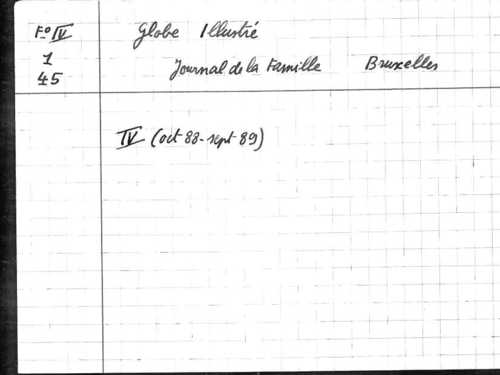 Fo IV
1
45
Globe Illustré
Journal de la Famille Bruxelles
IV (oct 88 - sept 89)